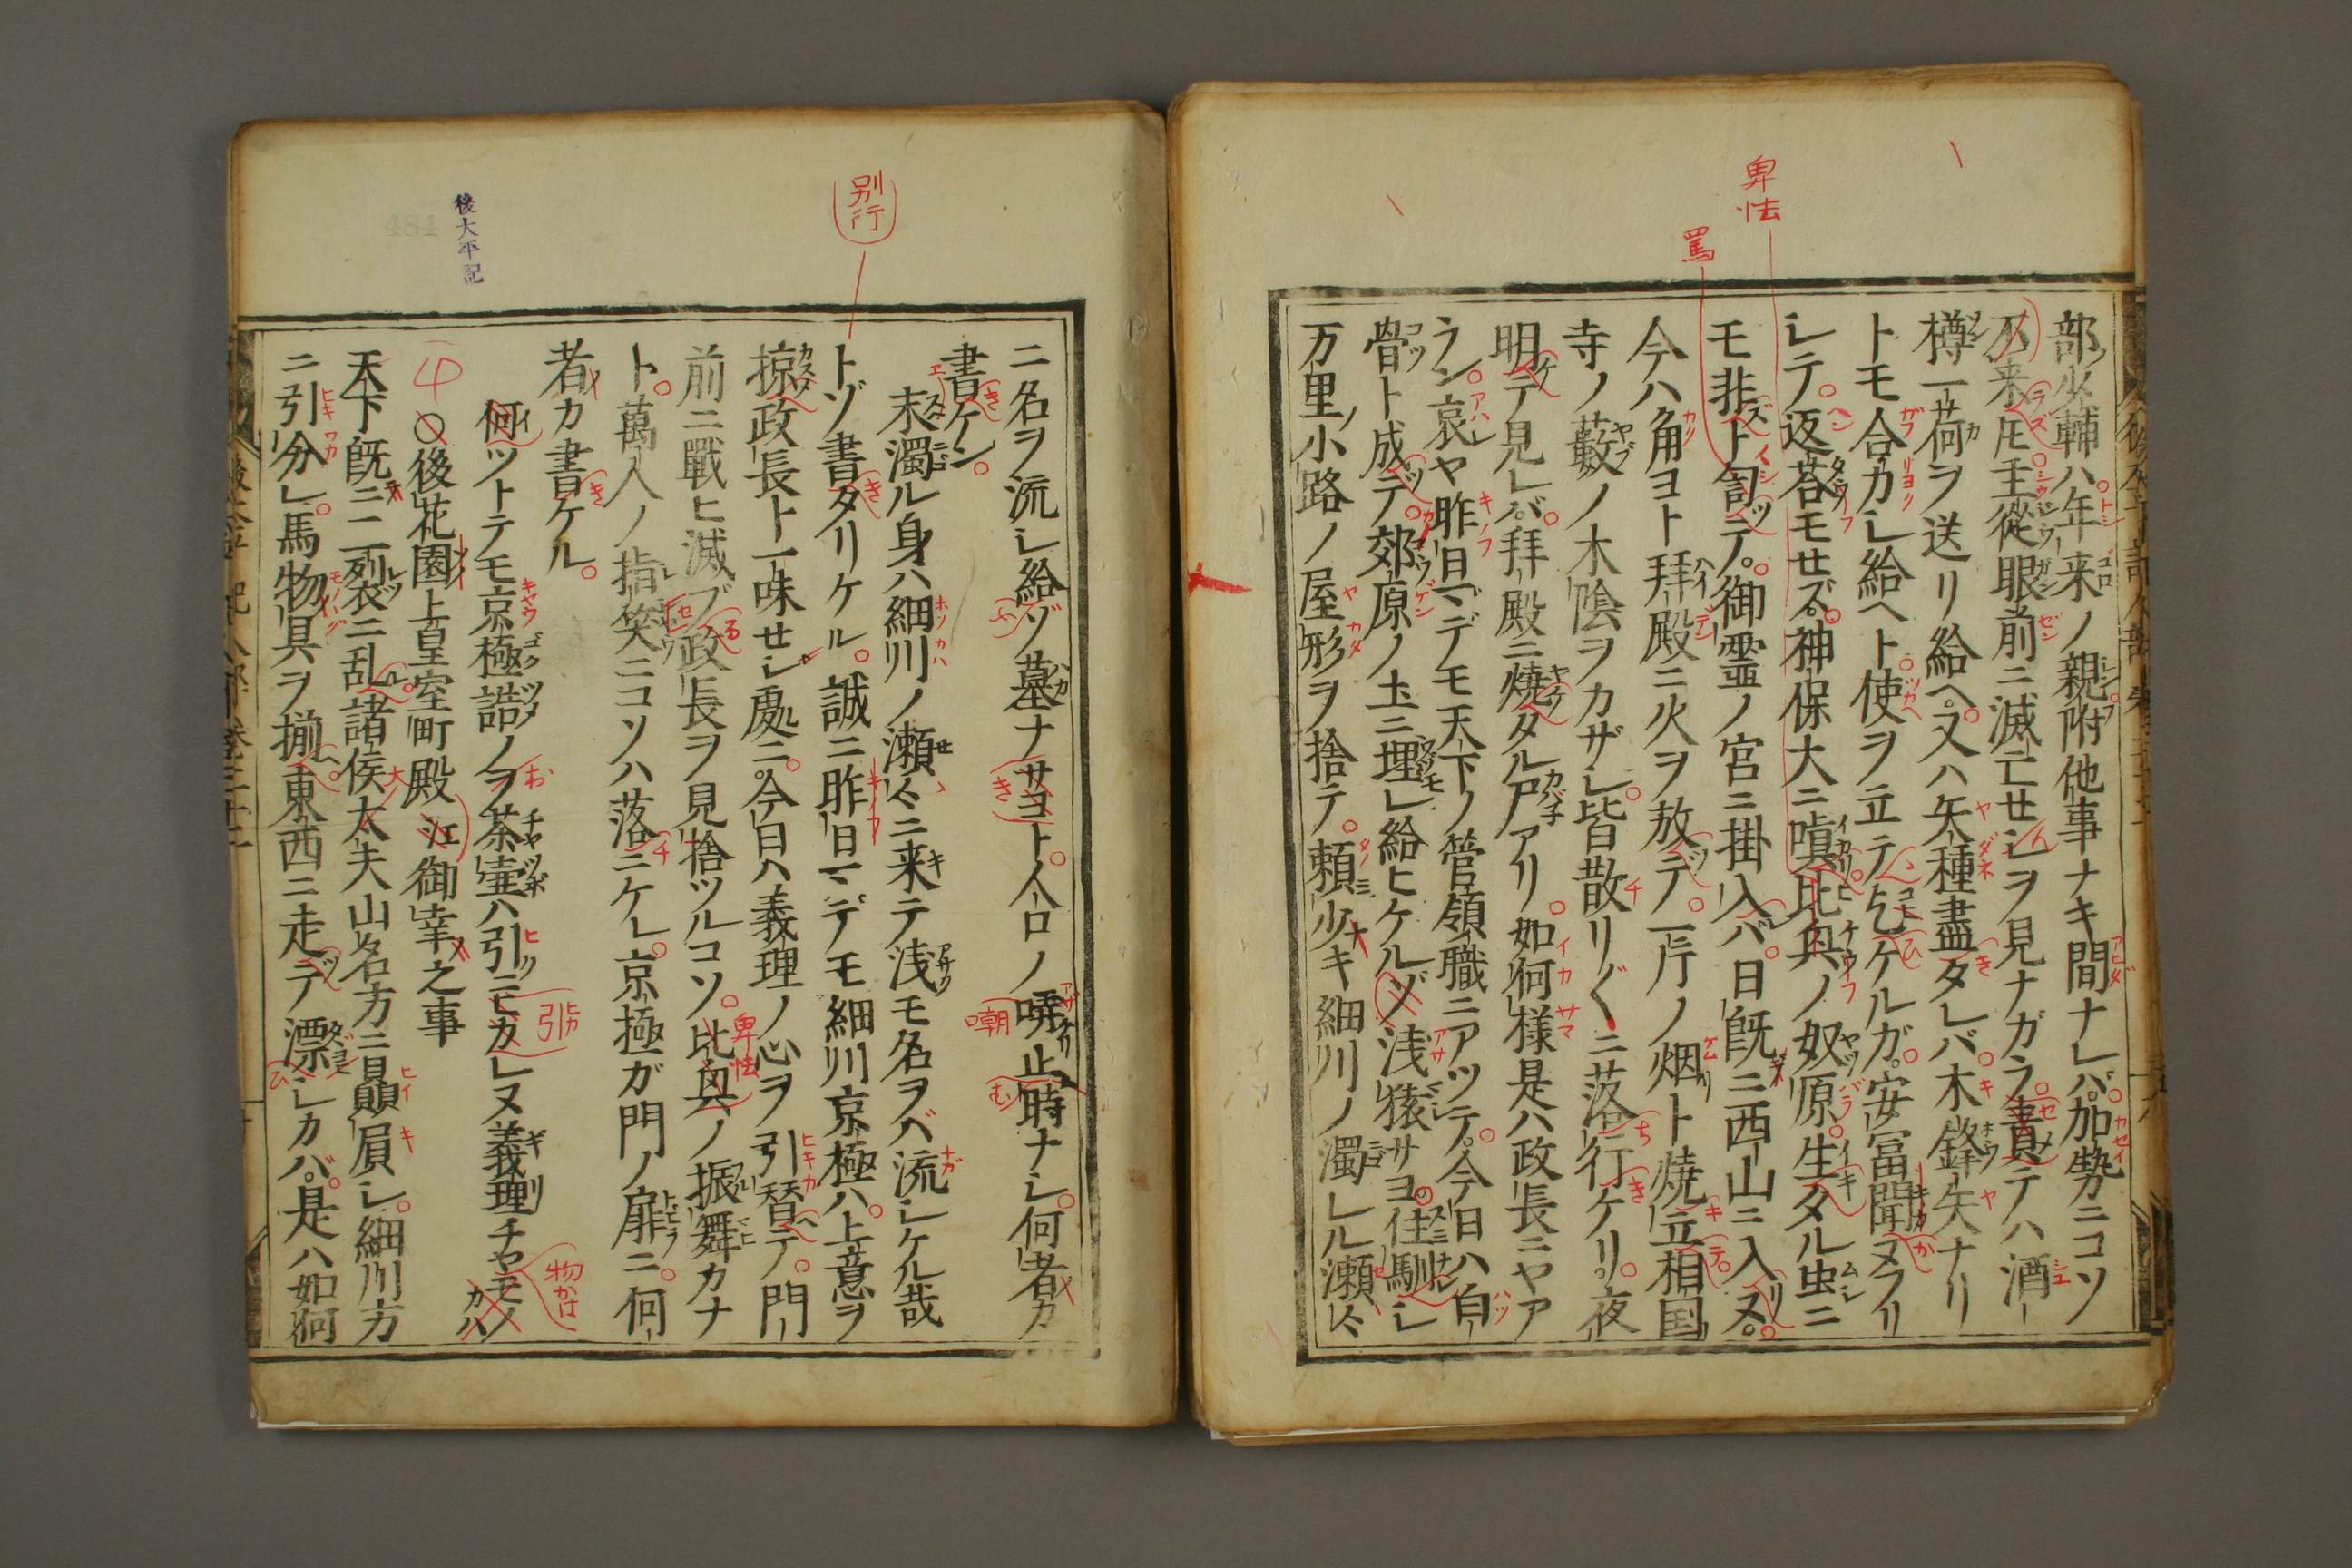 卑怯
罵
部少輔ハ年来ノ親附他事ナキ間ナレバ加勢ニコソ
不来圧主從眼前ニ滅亡せシヲ見ナガラ責テハ酒
樽一荷ヲ送リ給ヘ又ハ矢種盡タレバ木鋒矢ナリ
トモ合力レ給ヘト使ヲ立テ乞ケルガ安冨聞ヌフリ
レテ返荅モせズ神保大ニ嗔比興ノ奴原生タル虫ニ
モ非ト訇テ御霊ノ宮ニ掛入バ日既ニ西山ニ入ヌ
今ハ角コト拜殿ニ火ヲ放テ一片ノ烟ト焼立相国
寺ノ藪ノ木陰ヲカザレ皆散リ〲ニ落行ケリ夜
明テ見レバ拜殿ニ焼タル尸アリ如何様是ハ政長ニヤア
ラン哀ヤ昨日マデモ天下ノ管領職ニアツテ今日ハ自
骨ト成テ郊原ノ土ニ埋レ給ヒケルゾ浅猿サヨ住馴レ
万里小路ノ屋形ヲ捨テ頼少キ細川ノ濁レル瀬々
別行
後太平記
ニ名ヲ流レ給ゾ墓ナサヨト人口ノ止時ナレ何者カ
書ケン
末濁ル身ハ細川ノ瀬々ニ来テ浅モ名ヲバ流レケル哉
トゾ書タリケル誠ニ昨日マデモ細川京極ハ上意ヲ
掠政長ト一味せレ處ニ今日ハ義理ノ心ヲ引替テ門
前ニ戰ヒ滅ブ政長ヲ見捨ツルコソ比興ノ振舞カナ
ト萬人ノ指笑ニコソハ落ニケレ京極ガ門ノ扉ニ何
者カ書ケル
何ツトテモ京極詰ノヲ茶壷ハ引ニヒカレヌ義理チヤモノカハ
○後花園上皇室町殿江御幸之事
天下既ニ二列ニ乱諸侯太夫山名方ニ贔屓レ細川方
ニ引分レ馬物具ヲ揃東西ニ走テ漂レカバ是ハ如何